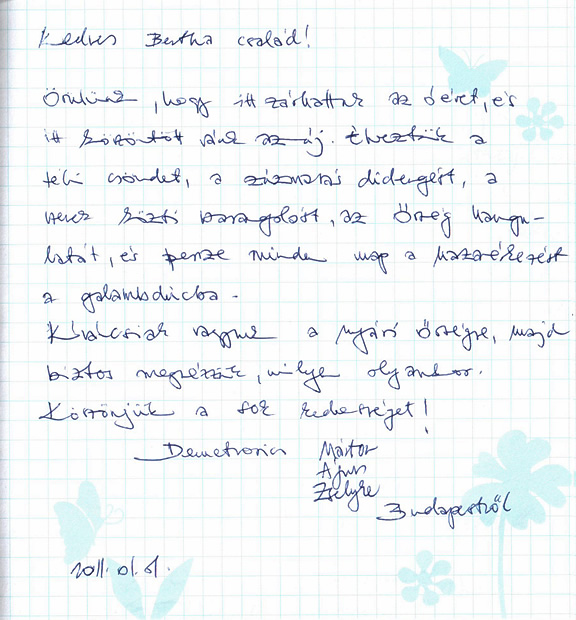 Kedves Bertha család!
Örülünk, hogy itt zárhattuk az óévet, és
itt köszöntött ránk az új. Élveztük a
téli csöndet, a zúzmarás didergést, a
veres közti barangolást, az Őrség hangu-
latát, és persze minden nap a hazaérkezést
a galambdúcba.
Kíváncsiak vagyunk a nyári Őrségre, majd
biztos megnézzük, milyen olyankor.
Köszönjük a sok kedvességet!
Demetrovics Márton
Ágnes
Zselyke
Budapestről
2011. 01. 01.